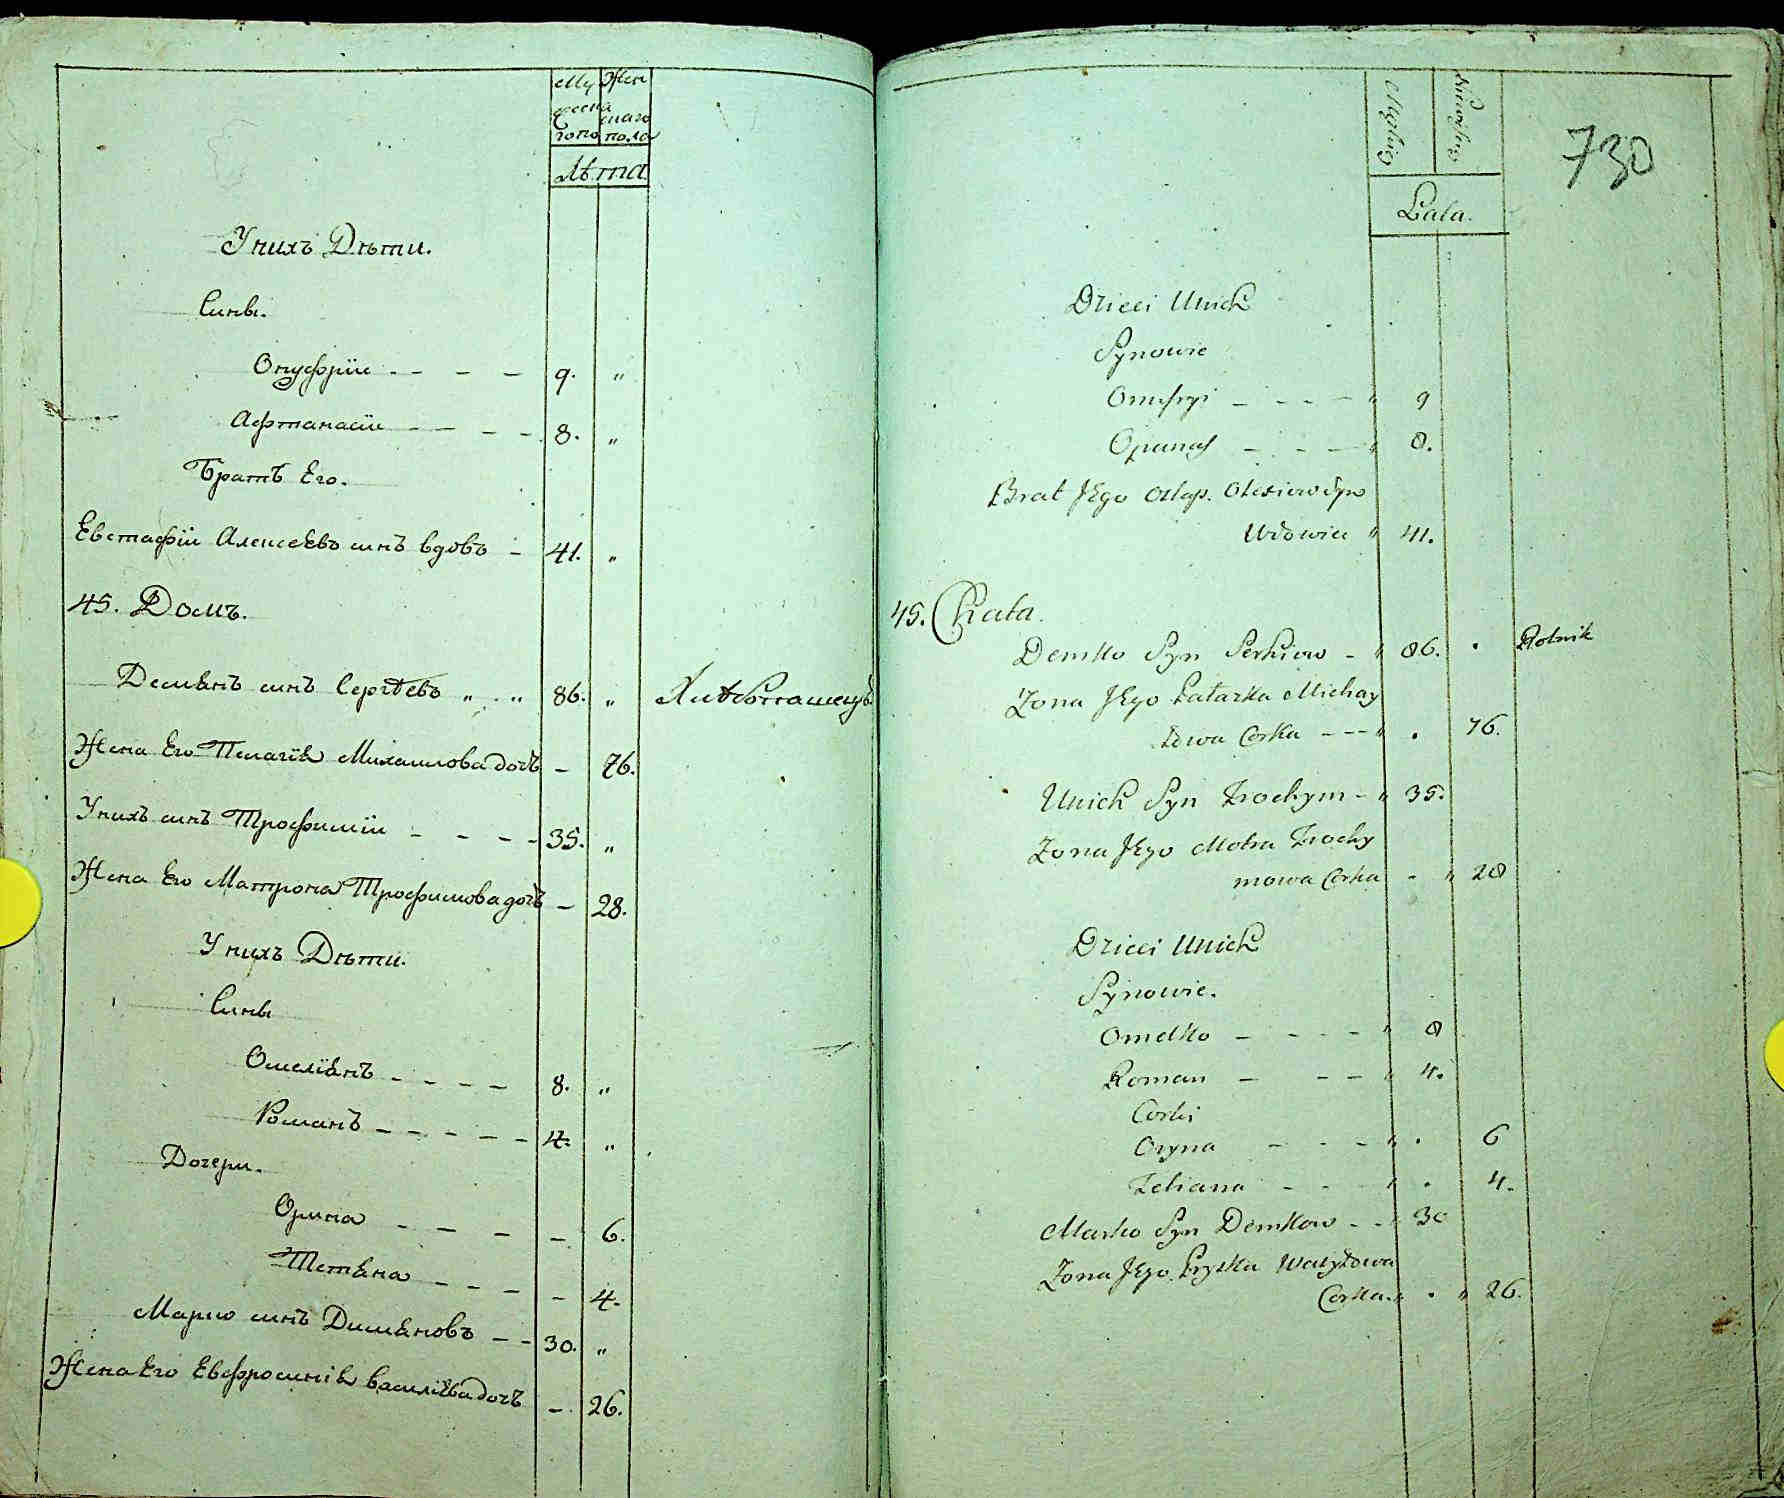 Мужеска го по
Женскаго пола
Лѣта
У нихъ Дѣти.
Сины.
Онуфрїи - - - - 9. "
Афтанасїи - - - - 8. "
Братъ Его.
Евстафїи Алексеевъ синъ вдовъ - 41. "
45. Домъ.
Демянъ синъ Сергѣевъ " " 86. " Хлѣбопашецъ
Жена Его Пелагїя Михаилова дочъ - 76.
У нихъ синъ Трофимїи - - - - 35. "
Жена Его Матрона Трофимова дочъ - 28.
У нихъ Дѣти.
Сины
Омелїянъ - - - - 8. "
Романъ - - - - - 4. "
Дочери.
Орина - - - - 6.
Тетяна - - - - 4.
Марко синъ Димяновъ - - 30. "
Жена Его Евфросинїя Василїева дочъ - 26.
730
Męskiey
Lata.
Dzieci Unich
Synowie
Onufryi - - - - " 9
Opanas - - - - " 8.
Brat JEgo Ostap. Olexiow Syn
Wdowiec " 41.
45. Chata.
Demko Syn Serhiow - " 86. . Rolnik
Zona JEgo Pałazka Michay
łowa Corka - - - " . 76.
Unich Syn Trochym - " 35.
Zona JEgo Motra Trochy
mowa Corka - " 28
Dzieci Unich
Synowie.
Omelko - - - - " 8
Roman - - - " 4.
Corki
Oryna - - - " . 6
Tetiana - - - " . 4.
Marko Syn Demkow - - " 30
Zona JEgo Pryska Wasylowa
Corka. " . " 26.